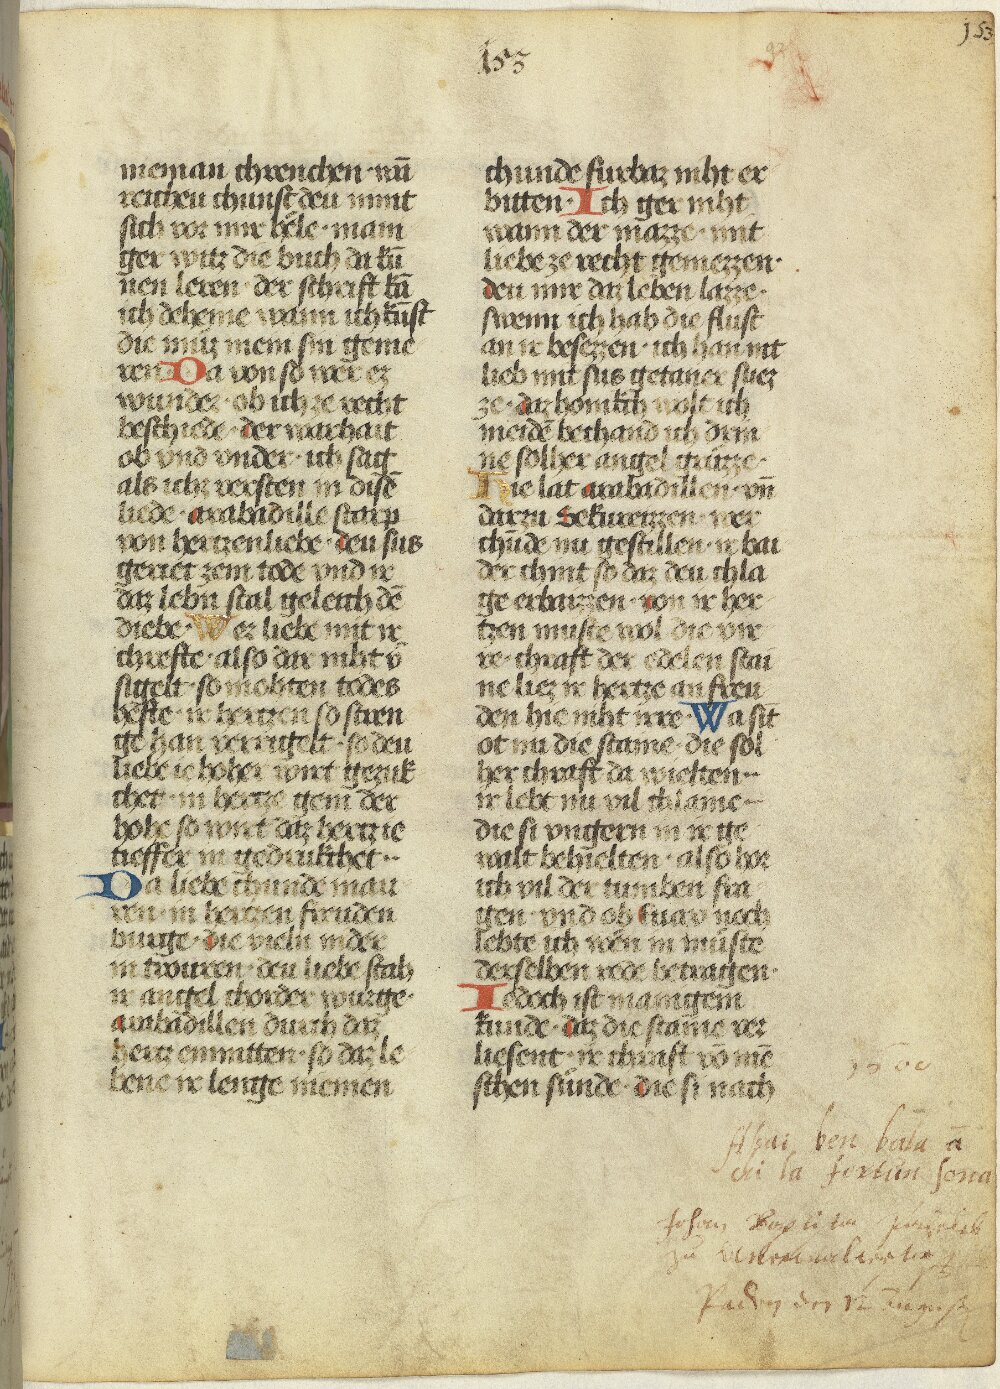 153
153
nieman chrenchen · vnd̄
reichen chunst deu nimt
sich vor mir hele · mani
ger witz die buch da kū
nen leren · der schrift kā
ich deheine wann ich kūst
die mūz mein sin geme
ren · Da von so wer ez
wunder · ob ich ze recht
beschiede · der warhait
ob vnd vnder · ich sag
als ichz versten in disē
liede · arabadille starp
von hertzenliebe · deu sus
geriet zem tode vnd ir
daz lebn̄ stal geleich dē
diebe · Wer liebe mit ir
chrefte · also dar niht v̄
sigelt · so mohten todes
hefte · ir hertzen so stren
ge han verrigelt · so deu
liebe ie hoher wirt gezuk
chet · in hertze geni der
hohe so wirt daz hertz ie
tieffer in gedrukchet ··
Da liebe chunde mau
ren · in hertzen freuden
burge · die vieln nider
in trouren · deu liebe stah
ir angel chorder wurge ·
arabadillen durch daz
hertz enmitten · so daz le
bene ir lenge niemen
chunde furbaz niht er
bitten · Ich ger niht
wann der mazze · mit
liebe ze recht gemezzen ·
deu mir daz leben lazze ·
swenn ich hab die flust
an ir besezzen · ich han nit
lieb mit sus getaner suez
ze · daz honikch wolt ich
meidē bechand ich dr̄in
ne solher angel grūzze ·
Hie lat arabadillen · vn̄
darzu Sekureizzen · wer
chūde nu gestillen · ir bai
der chint so daz deu chla
ge erbaizzen · von ir her
tzen muste wol die vir
re · chraft der edelen stai
ne liez ir hertze an freu
den hie niht irre · Wa sīt
ot nu die staine · die sol
her chraft da wielten ··
ir lebt nu vil chlaine ··
die si vngern in ir ge
walt behielten · also hor
ich vil der tumben fra
gen · vnd ob fuar noch
lebte ich wēn in mūste
derselben rede betragen ·
Iedoch ist manigem
kunde · daz die staine ver
liesent · ir chraft vō mē
schen sūnde · die si nach
1500
ben
di la fortun
Johan
zu
den 12 August